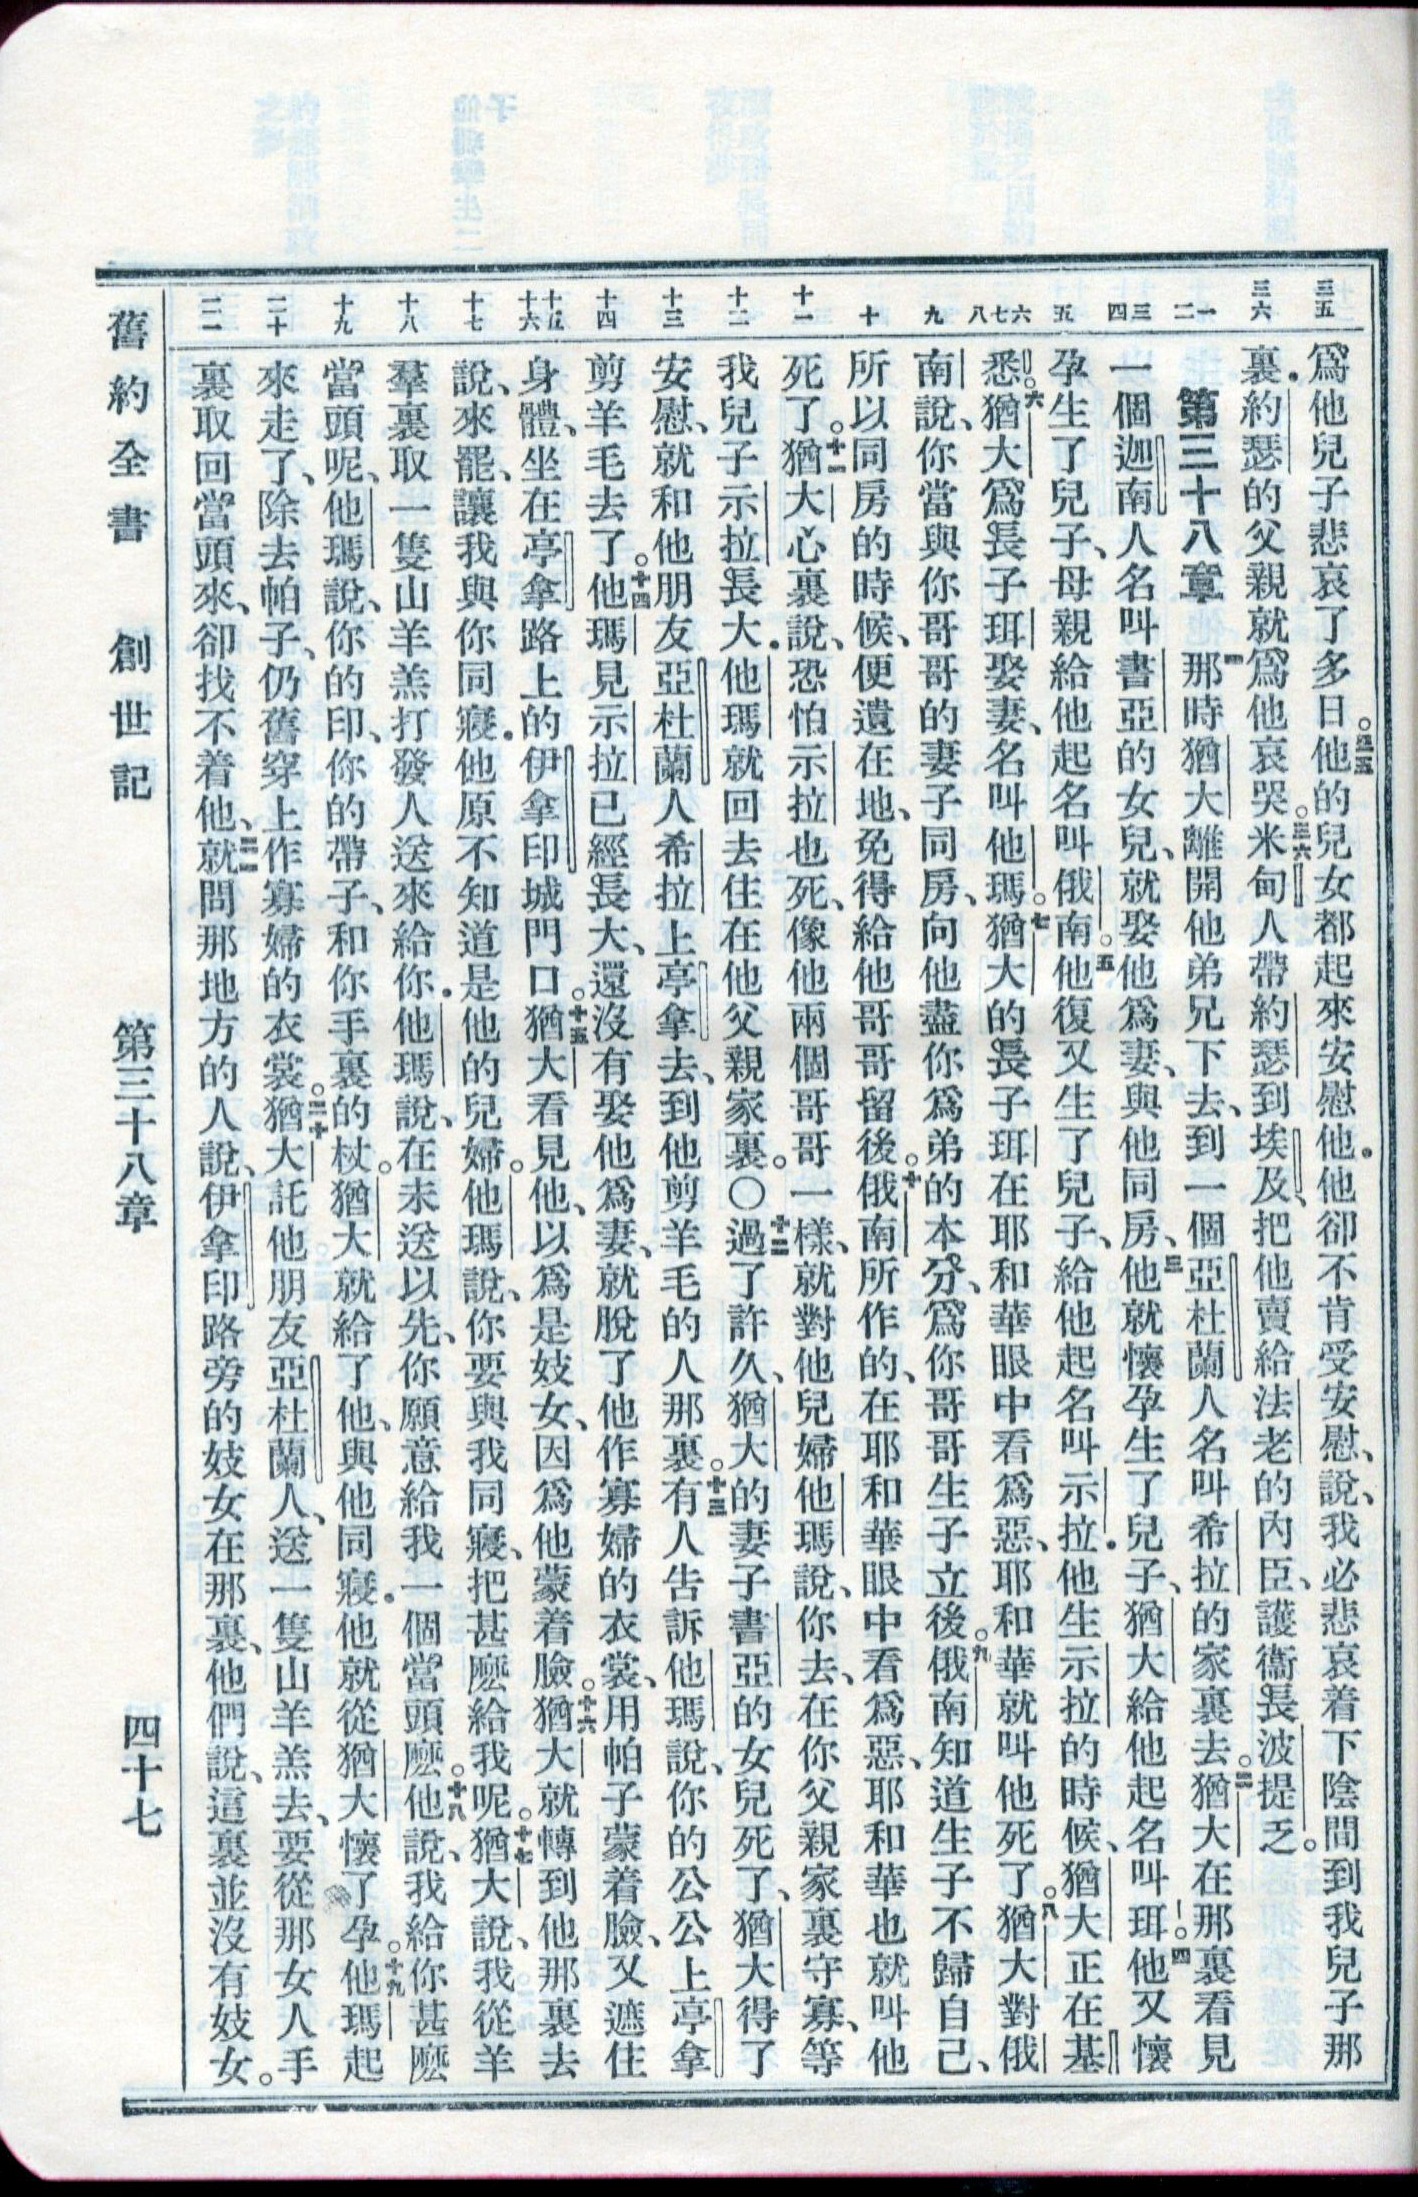 三五 三六 一 二 三 四 五 六 七 八 九 十 十一 十二 十三 十四 十五 十六 十七 十八 十九 二十 二一
爲他兒子悲哀了多日。三五他的兒女都起來安慰他．他卻不肯受安慰、說、我必悲哀着下陰間到我兒子那
裏．約瑟的父親就爲他哀哭。三六米甸人帶約瑟到埃及、把他賣給法老的內臣、護衞長波提乏。
第三十八章 一那時猶大離開他弟兄下去、到一個亞杜蘭人名叫希拉的家裏去。二猶大在那裏看見
一個迦南人名叫書亞的女兒、就娶他爲妻、與他同房、三他就懷孕生了兒子、猶大給他起名叫珥。四他又懷
孕生了兒子、母親給他起名叫俄南。五他復又生了兒子、給他起名叫示拉．他生示拉的時候、猶大正在基
悉。六猶大爲長子珥娶妻、名叫他瑪。七猶大的長子珥在耶和華眼中看爲惡、耶和華就叫他死了。八猶大對俄
南說、你當與你哥哥的妻子同房、向他盡你爲弟的本分、爲你哥哥生子立後。九俄南知道生子不歸自己、
所以同房的時候、便遺在地、免得給他哥哥留後。十俄南所作的、在耶和華眼中看爲惡、耶和華也就叫他
死了。十一猶大心裏說、恐怕示拉也死、像他兩個哥哥一樣、就對他兒婦他瑪說、你去、在你父親家裏守寡、等
我兒子示拉長大．他瑪就回去住在他父親家裏。○十二過了許久、猶大的妻子書亞的女兒死了、猶大得了
安慰、就和他朋友亞杜蘭人希拉上亭拿去、到他剪羊毛的人那裏。十三有人告訴他瑪說、你的公公上亭拿
剪羊毛去了。十四他瑪見示拉已經長大、還沒有娶他爲妻、就脫了他作寡婦的衣裳、用帕子蒙着臉、又遮住
身體、坐在亭拿路上的伊拿印城門口。十五猶大看見他、以爲是妓女、因爲他蒙着臉。十六猶大就轉到他那裏去
說、來罷、讓我與你同寢．他原不知道是他的兒婦。他瑪說、你要與我同寢、把甚麼給我呢。十七猶大說、我從羊
羣裏取一隻山羊羔打發人送來給你．他瑪說、在未送以先、你願意給我一個當頭麼。十八他說、我給你甚麼
當頭呢、他瑪說、你的印、你的帶子、和你手裏的杖。猶大就給了他、與他同寢．他就從猶大懷了孕。十九他瑪起
來走了、除去帕子、仍舊穿上作寡婦的衣裳。二十猶大託他朋友亞杜蘭人、送一隻山羊羔去、要從那女人手
裏取回當頭來、卻找不着他、二一就問那地方的人說、伊拿印路旁的妓女在那裏、他們說、這裏並沒有妓女。
舊約全書 創世記 第三十八章 四十七